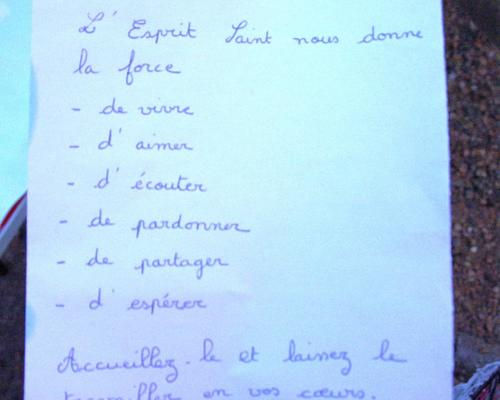 L'Esprit Saint nous donne
la force
- de vivre
- d'aimer
- d'écouter
- de pardonner
- de partager
- d'espérer
Accueillez-le et laissez le
travailler en vos cœurs.